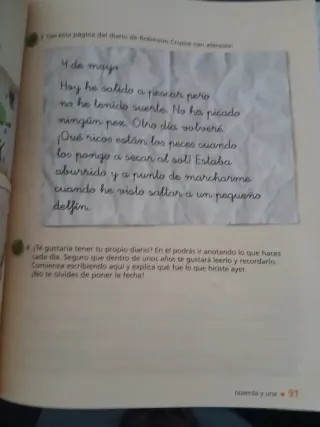 3 Lee esta página del diario de Robinson Crusoe con atención.
4 de mayo
Hoy he salido a pescar pero
no he tenido suerte. No ha picado
ningún pez. Otro día volveré.
¡Qué ricos están los peces cuando
los pongo a secar al sol! Estaba
aburrido y a punto de marcharme
cuando he visto saltar a un pequeño
delfín.
4 ¿Te gustaría tener tu propio diario? En él podrás ir anotando lo que haces
cada día. Seguro que dentro de unos años te gustará leerlo y recordarlo.
Comienza escribiendo aquí y explica qué fue lo que hiciste ayer.
¡No te olvides de poner la fecha!
noventa y uno 91